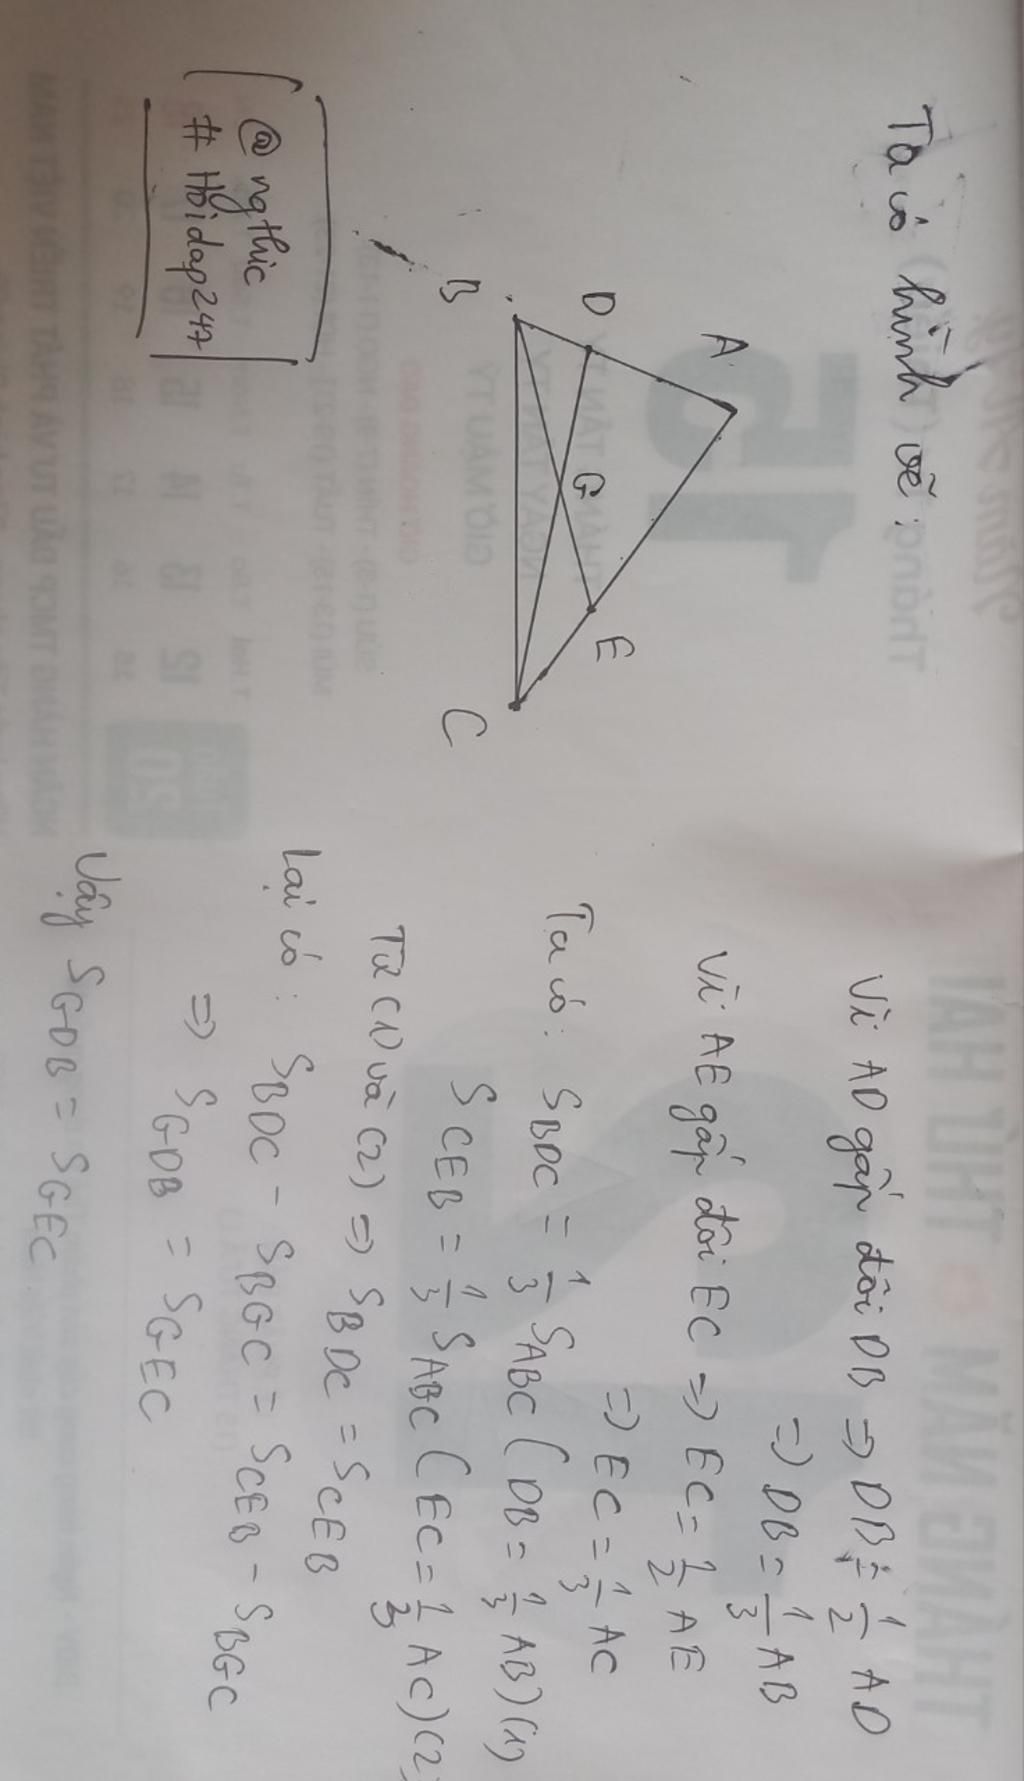 Ta có hình vẽ:
A
D
B
G
E
C
@ngthic
# Hỏidap247
Vì AD gấp đôi DB => DB = 1/2 AD
=> DB = 1/3 AB
Vì AE gấp đôi EC => EC = 1/2 AE
=> EC = 1/3 AC
Ta có: SBDC = 1/3 SABC (DB = 1/3 AB) (1)
SCEB = 1/3 SABC (EC = 1/3 AC) (2)
Từ (1) và (2) => SBDC = SCEB
Lại có: SBDC - SBGC = SCEB - SBGC
=> SGDB = SGEC
Vậy SGDB = SGEC